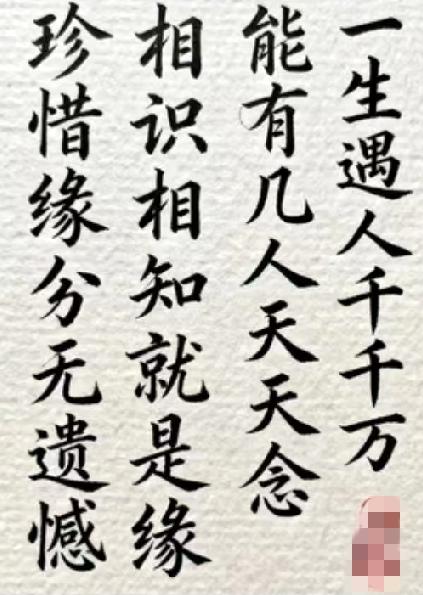 一生遇人千千万
能有几人天天念
相识相知就是缘
珍惜缘分无遗憾